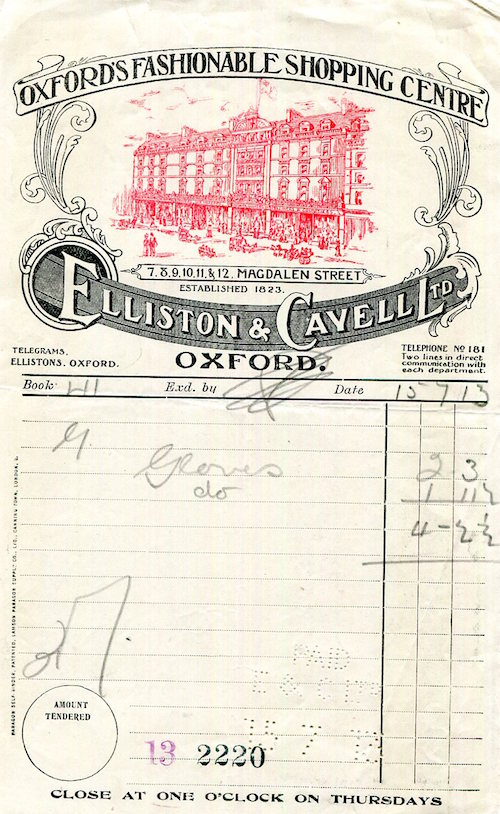 OXFORD'S FASHIONABLE SHOPPING CENTRE
7. 8, 9, 10, 11, & 12. MAGDALEN STREET
ESTABLISHED 1823.
ELLISTON & CAVELL LTD
OXFORD.
TELEGRAMS. ELLISTONS. OXFORD.
TELEPHONE Nº 181
Two lines in direct communication with each department.
Book Exd. by Date 15 7 13
Gloves 2 3
do 1 11½
4 - 2½
PARAGON SELF-BINDER, PATENTED, LAMSON PARAGON SUPPLY CO., LTD., CANNING TOWN, LONDON, E.
PAID
E & C LTD
15 7 13
AMOUNT TENDERED
13 2220
CLOSE AT ONE O'CLOCK ON THURSDAYS